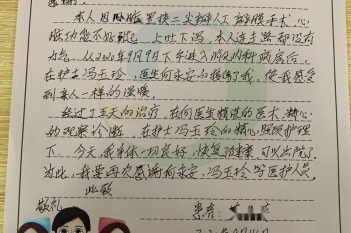 感谢!
本人因心脏置换二尖瓣人工瓣膜手术,心
脏功能不好,上吐下泻,本人连走路都没有
力气。从2020年9月9日下午进入心内科病房后,
在护士冯玉玲,医生何永安的指导下,使我感受
到亲人一样的温暖。
经过了五天的治疗,在何医生精湛的医术,精心
的观察诊断,在护士冯玉玲的精心照顾护理
下,今天,我身体一切良好,恢复健康,可以出院了
为此,我要再次感谢何永安,冯玉玲等医护人员。
此致
敬礼
患者: